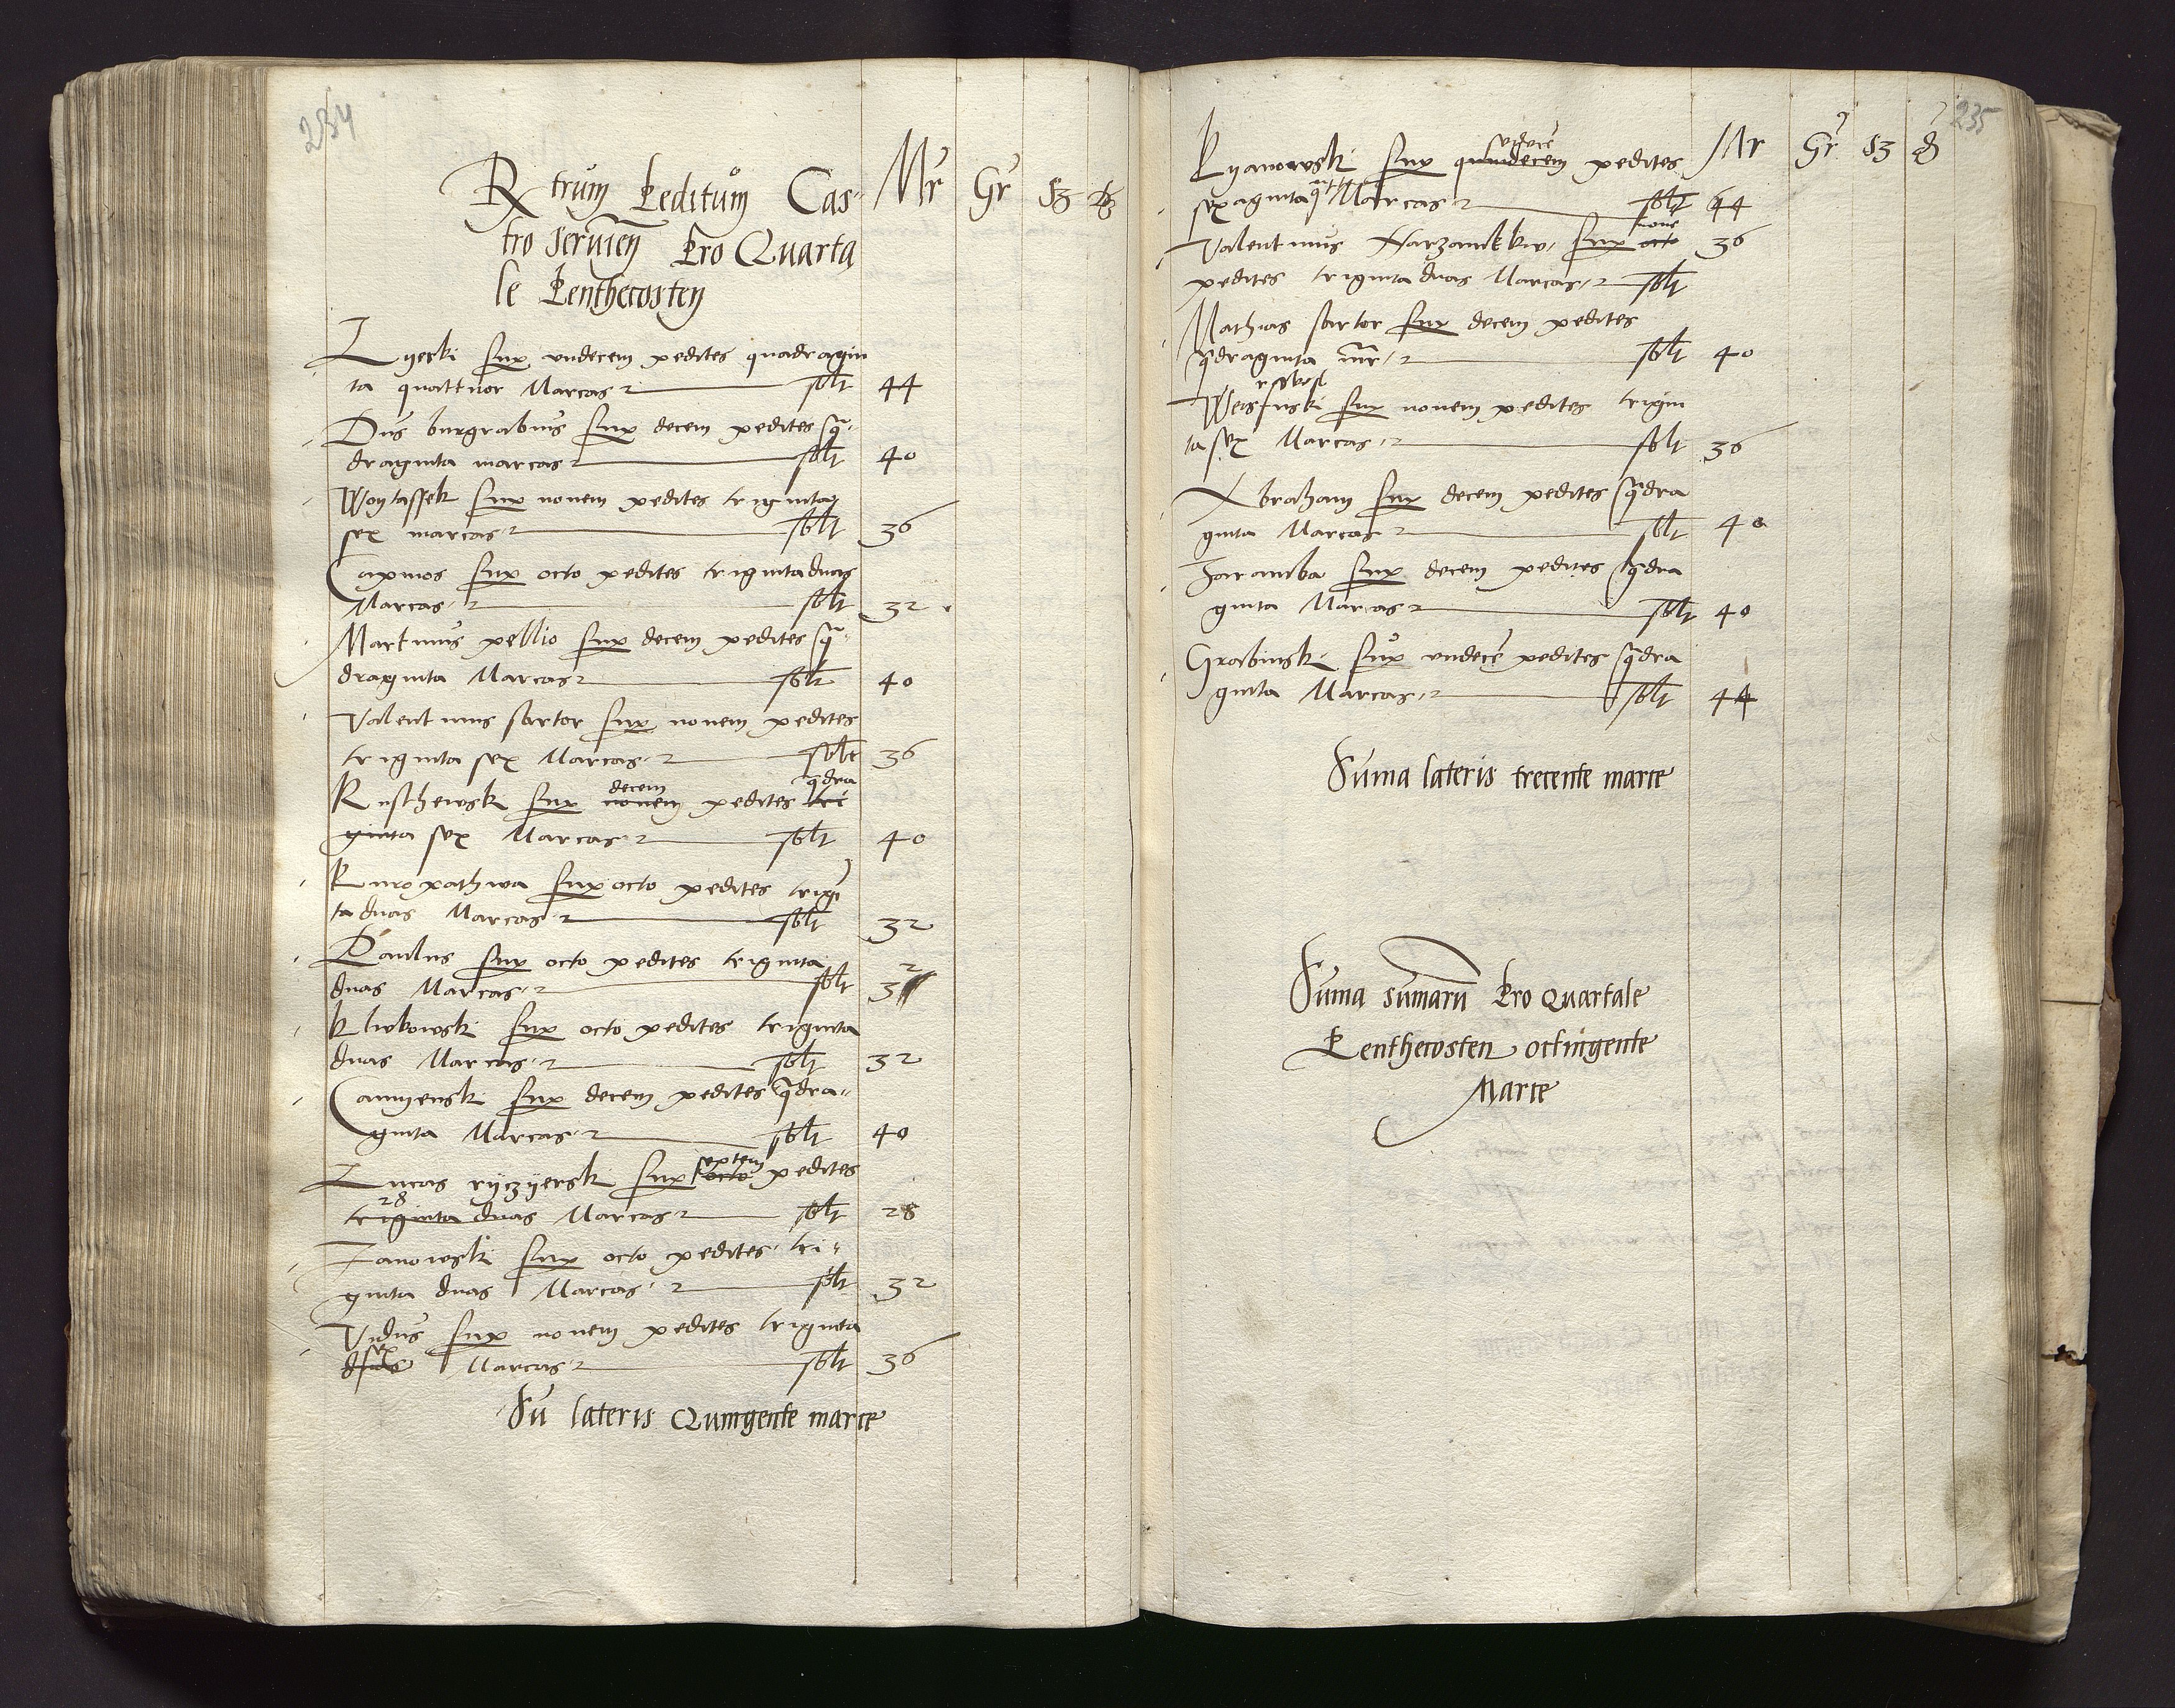 234
Rtrum Peditum Cas- Mr Gr sz d
tro Servien Pro Quarta
le Penthecosten
Lyeski sup undecem pedites quadragin
ta quattuor Marcas solt 44
Dns burgrabius sup decem pedites qua-
draginta marcas solt 40
Woytassek sup novem pedites triginta
sex marcas solt 36
sup octo pedites triginta duas
Marcas solt 32
Martinus pellio sup decem pedites qua-
draginta Marcas solt 40
Valentinus sartor sup novem pedites
triginta sex Marcas solt 36
decem qdra
sup novem pedites tri
ginta sex Marcas solt 40
Kuropathwa sup octo pedites trigi
ta duas Marcas solt 32
Paulus sup octo pedites triginta
duas Marcas solt 32
sup octo pedites triginta
duas Marcas solt 32
Camyensk sup decem pedites qdra-
ginta Marcas solt 40
septem
Lucas sup octo pedites
28
triginta duas Marcas solt 28
Janowski sup octo pedites tri-
ginta duas Marcas solt 32
Vidus sup novem pedites triginta
sex
Marcas solt 36
Su lateris Quingente marce
235
Mr Gr sz d
undece
Kyanowski sup quindecem pedites
sexaginta Marcas solt 44
nove
Valentinus sup octo 36
pedites triginta duas Marcas solt
Mathias sartor sup decem pedites
qdraginta mr solt 40
sup novem pedites trigin
ta sex Marcas solt 36
Abraham sup decem pedites qdra
ginta Marcas solt 40
Zaramba sup decem pedites qdra
ginta Marcas solt 40
Grabinski sup undece pedites qdra
ginta Marcas solt 44
Suma lateris trecente marce
Suma sumaru Pro Quartale
Penthecosten octingente
Marce